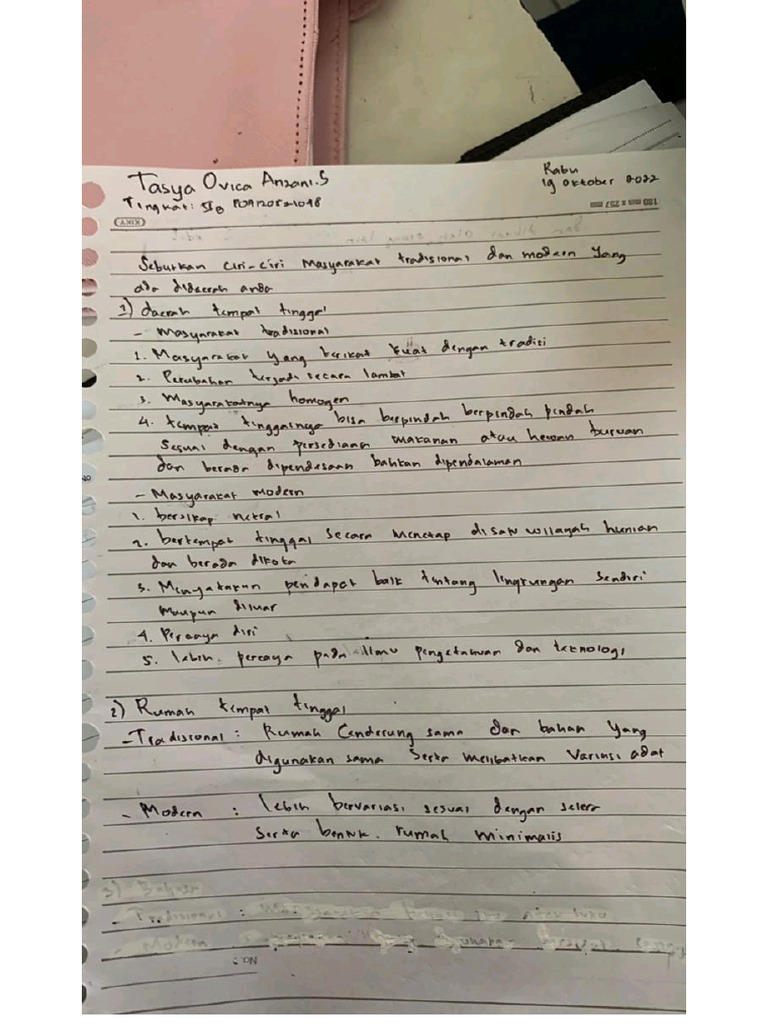 Tasya Ovica Anzani.S
Rabu
19 Oktober 2022
Tingkat: II B
KIKY
Seburkan ciri-ciri masyarakat tradisional dan modern yang
ada didaerah anda
1) daerah tempat tinggal
- Masyarakat tradisional
1. Masyarakat yang terikat kuat dengan tradisi
2. Perubahan terjadi secara lambat
3. Masyarakatnya homogen
4. tempat tinggalnya bisa berpindah berpindah pindah
sesuai dengan persediaan makanan atau hewan buruan
dan berada dipendesaan bahkan dipendalaman
- Masyarakat modern
1. bersikap netral
2. bertempat tinggal secara menetap disatu wilayah hunian
dan berada dikota
3. Menyatakan pendapat baik tentang lingkungan sendiri
maupun diluar
4. Percaya diri
5. lebih percaya pada ilmu pengetahuan dan teknologi
2) Rumah tempat tinggal
- Tradisional : Rumah Cenderung sama dan bahan yang
digunakan sama serta melibatkan variasi adat
- Modern : lebih bervariasi sesuai dengan selera
serta bentuk rumah minimalis
No :